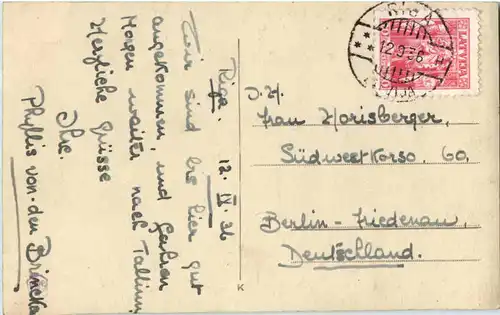 Riga. 12. IX. 36
Wir sind bis hier gut
angekommen, und fahren
Morgen weiter nach Tallinn
Herzliche Grüsse
Ihre.
Phyllis von den Brincken
RIGA
12.9.36
LATVIJA
LATVIJA
I. H.
Frau Horisberger,
Südwestkorso, 60,
Berlin-Friedenau,
Deutschland.
K